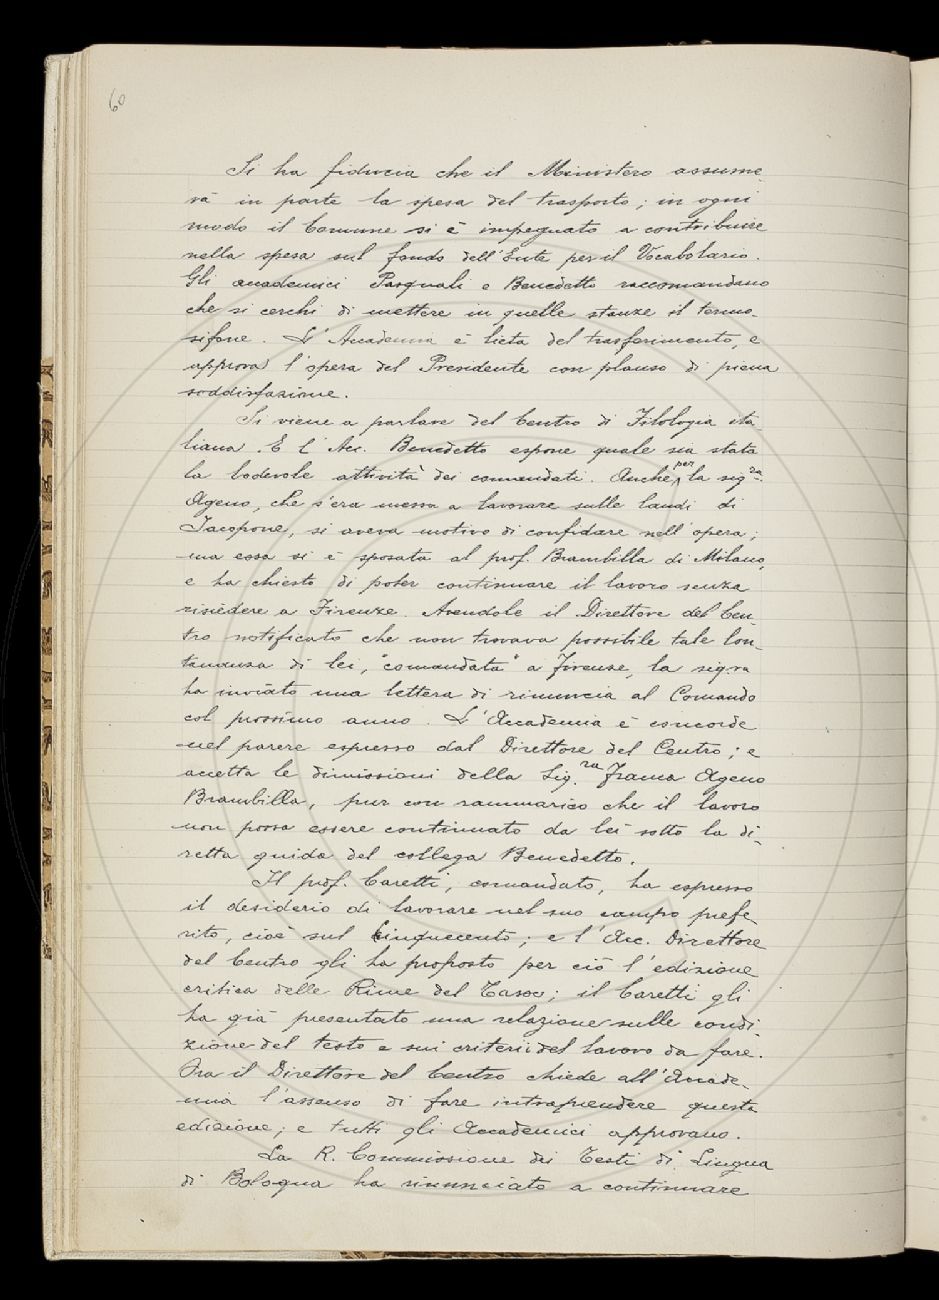 60
Si ha fiducia che il Ministero assume-
rà in parte la spesa del trasporto; in ogni
modo il Comune si è impegnato a contribuire
nella spesa sul fondo dell'Ente per il Vocabolario.
Gli accademici Pasquali e Benedetto raccomandano
che si cerchi di mettere in quelle stanze il termo-
sifone. L'Accademia è lieta del trasferimento, e
approva l'opera del Presidente con plauso di piena
soddisfazione.
Si viene a parlare del Centro di Filologia ita-
liana. E l'Acc. Benedetto espone quale sia stata
la lodevole attività dei comandati. Anche per la sig.ra
Ageno, che s'era messa a lavorare sulle laudi di
Jacopone, si aveva motivo di confidare nell'opera;
ma essa si è sposata al prof. Brambilla di Milano,
e ha chiesto di poter continuare il lavoro senza
risiedere a Firenze. Avendole il Direttore del Cen-
tro notificato che non trovava possibile tale lon-
tananza di lei, "comandata" a Firenze, la sig.ra
ha inviato una lettera di rinuncia al Comando
col prossimo anno. L'Accademia è concorde
nel parere espresso dal Direttore del Centro; e
accetta le dimissioni della Sig.ra Franca Ageno
Brambilla, pur con rammarico che il lavoro
non possa essere continuato da lei sotto la di-
retta guida del collega Benedetto.
Il prof. Caretti, comandato, ha espresso
il desiderio di lavorare nel suo campo prefe-
rito, cioè sul Cinquecento; e l'Acc. Direttore
del Centro gli ha proposto per ciò l'edizione
critica delle Rime del Tasso; il Caretti gli
ha già presentato una relazione sulle condi-
zione del testo e sui criterii del lavoro da fare.
Ora il Direttore del Centro chiede all'Accade-
mia l'assenso di fare intraprendere questa
edizione; e tutti gli Accademici approvano.
La R. Commissione dei Testi di Lingua
di Bologna ha rinunciato a continuare